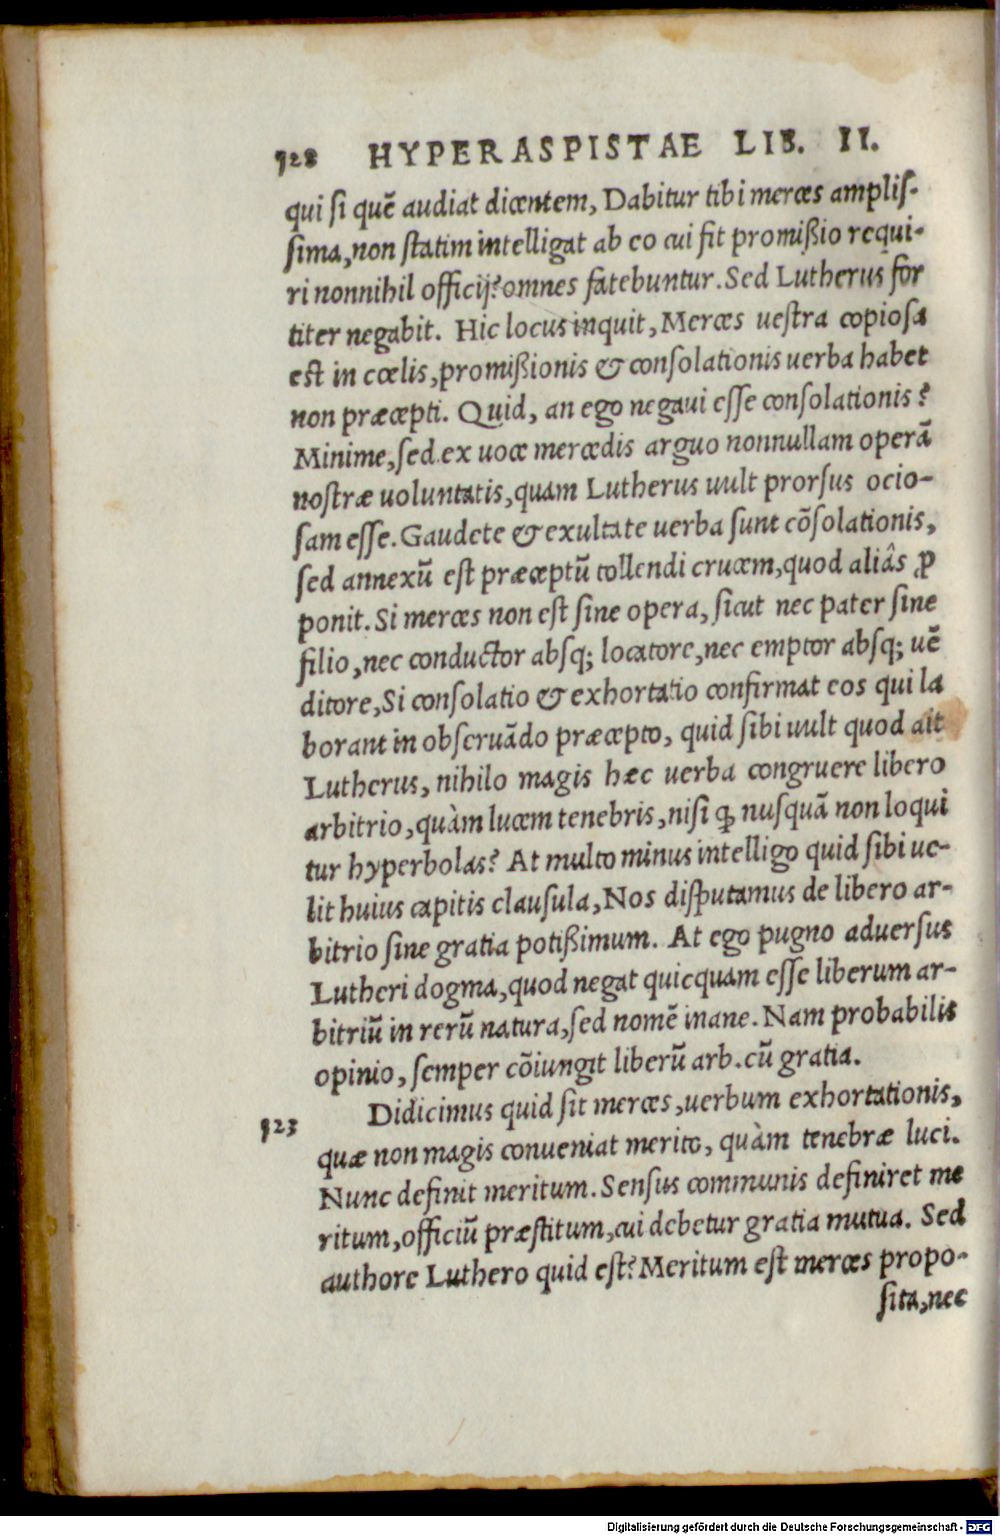 528 HYPERASPISTAE LIB. II.
qui si quẽ audiat dicentem, Dabitur tibi merces amplis-
sima, non statim intelligat ab eo cui fit promißio requi-
ri nonnihil officij? omnes fatebuntur. Sed Lutherus for
titer negabit. Hic locus inquit, Merces uestra copiosa
est in cœlis, promißionis & consolationis uerba habet
non præcepti. Quid, an ego negaui esse consolationis?
Minime, sed ex uoce mercedis arguo nonnullam operã
nostræ uoluntatis, quam Lutherus uult prorsus ocio-
sam esse. Gaudete & exultate uerba sunt cõsolationis,
sed annexũ est præceptũ tollendi crucem, quod aliâs ꝓ
ponit. Si merces non est sine opera, sicut nec pater sine
filio, nec conductor absq; locatore, nec emptor absq; uẽ
ditore, Si consolatio & exhortatio confirmat eos qui la
borant in obseruãdo præcepto, quid sibi uult quod ait
Lutherus, nihilo magis hæc uerba congruere libero
arbitrio, quàm lucem tenebris, nisi ꝙ nusquã non loqui
tur hyperbolas? At multo minus intelligo quid sibi ue-
lit huius capitis clausula, Nos disputamus de libero ar-
bitrio sine gratia potißimum. At ego pugno aduersus
Lutheri dogma, quod negat quicquam esse liberum ar-
bitriũ in rerũ natura, sed nomẽ inane. Nam probabilis
opinio, semper cõiungit liberũ arb. cũ gratia.
523 Didicimus quid sit merces, uerbum exhortationis,
quæ non magis conueniat merito, quàm tenebræ luci.
Nunc definit meritum. Sensus communis definiret me
ritum, officiũ præstitum, cui debetur gratia mutua. Sed
authore Luthero quid est? Meritum est merces propo-
sita, nec
Digitalisierung gefördert durch die Deutsche Forschungsgemeinschaft - DFG